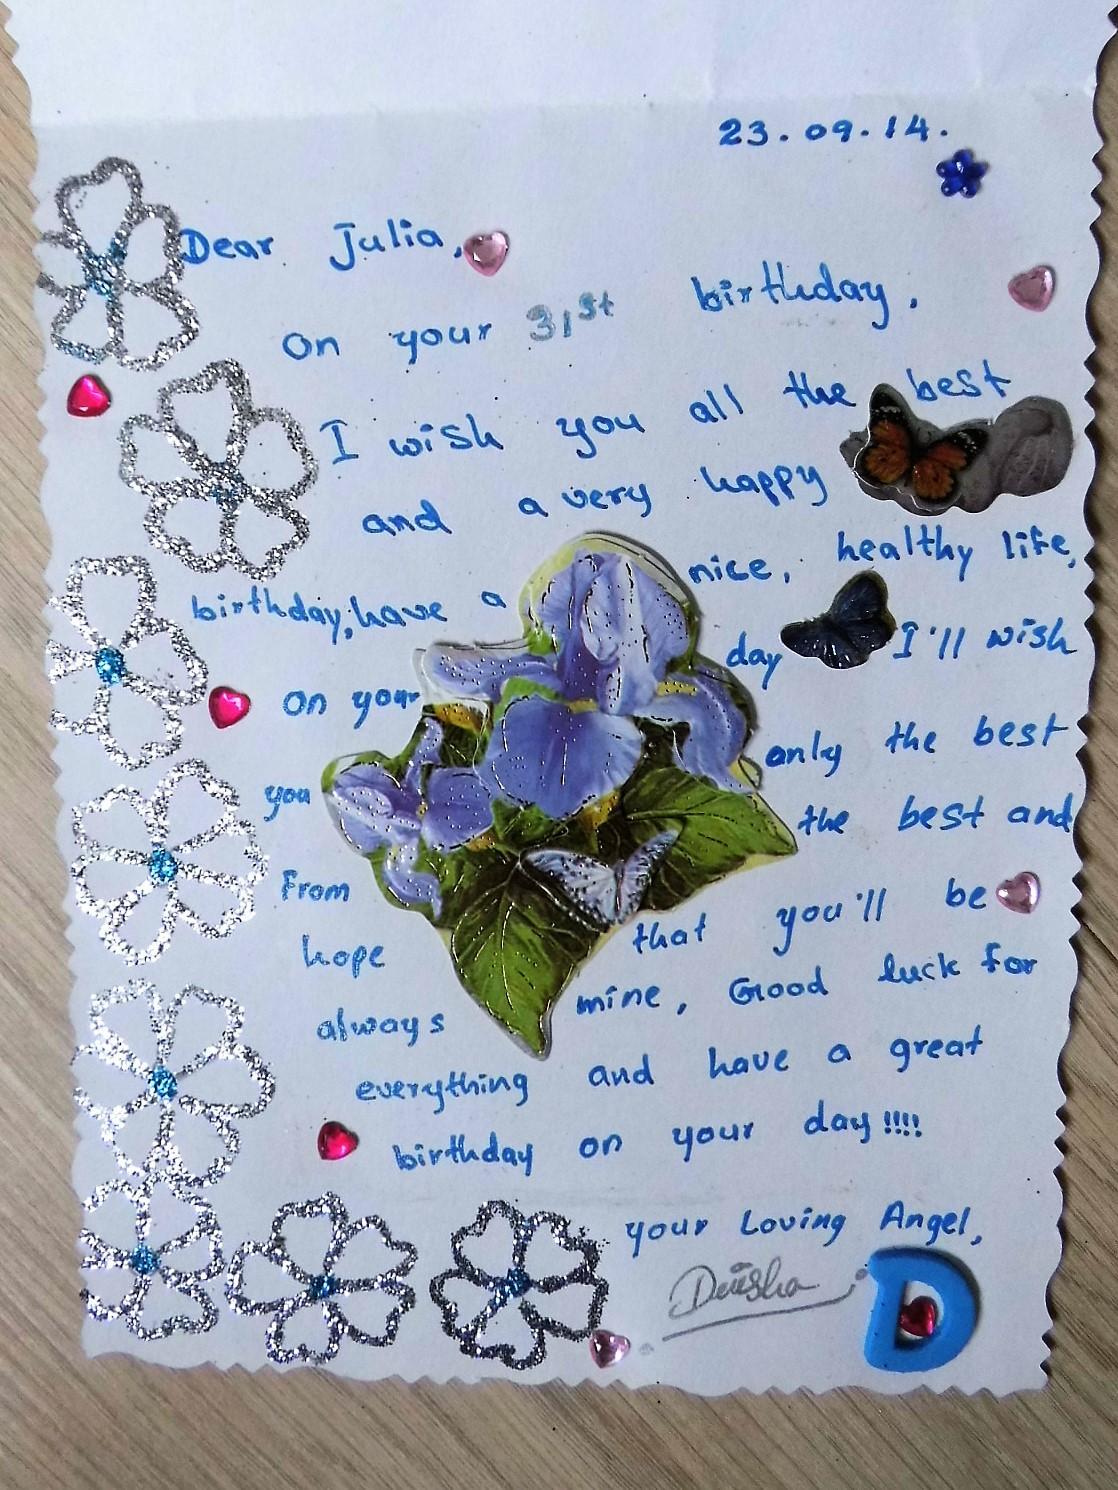 23.09.14.
Dear Julia,
On your 31st birthday,
I wish you all the best
and a very happy
birthday, have a nice, healthy life,
On your day I'll wish
you only the best
From the best and
hope that you'll be
always mine, Good luck for
everything and have a great
birthday on your day!!!!
your Loving Angel,
D